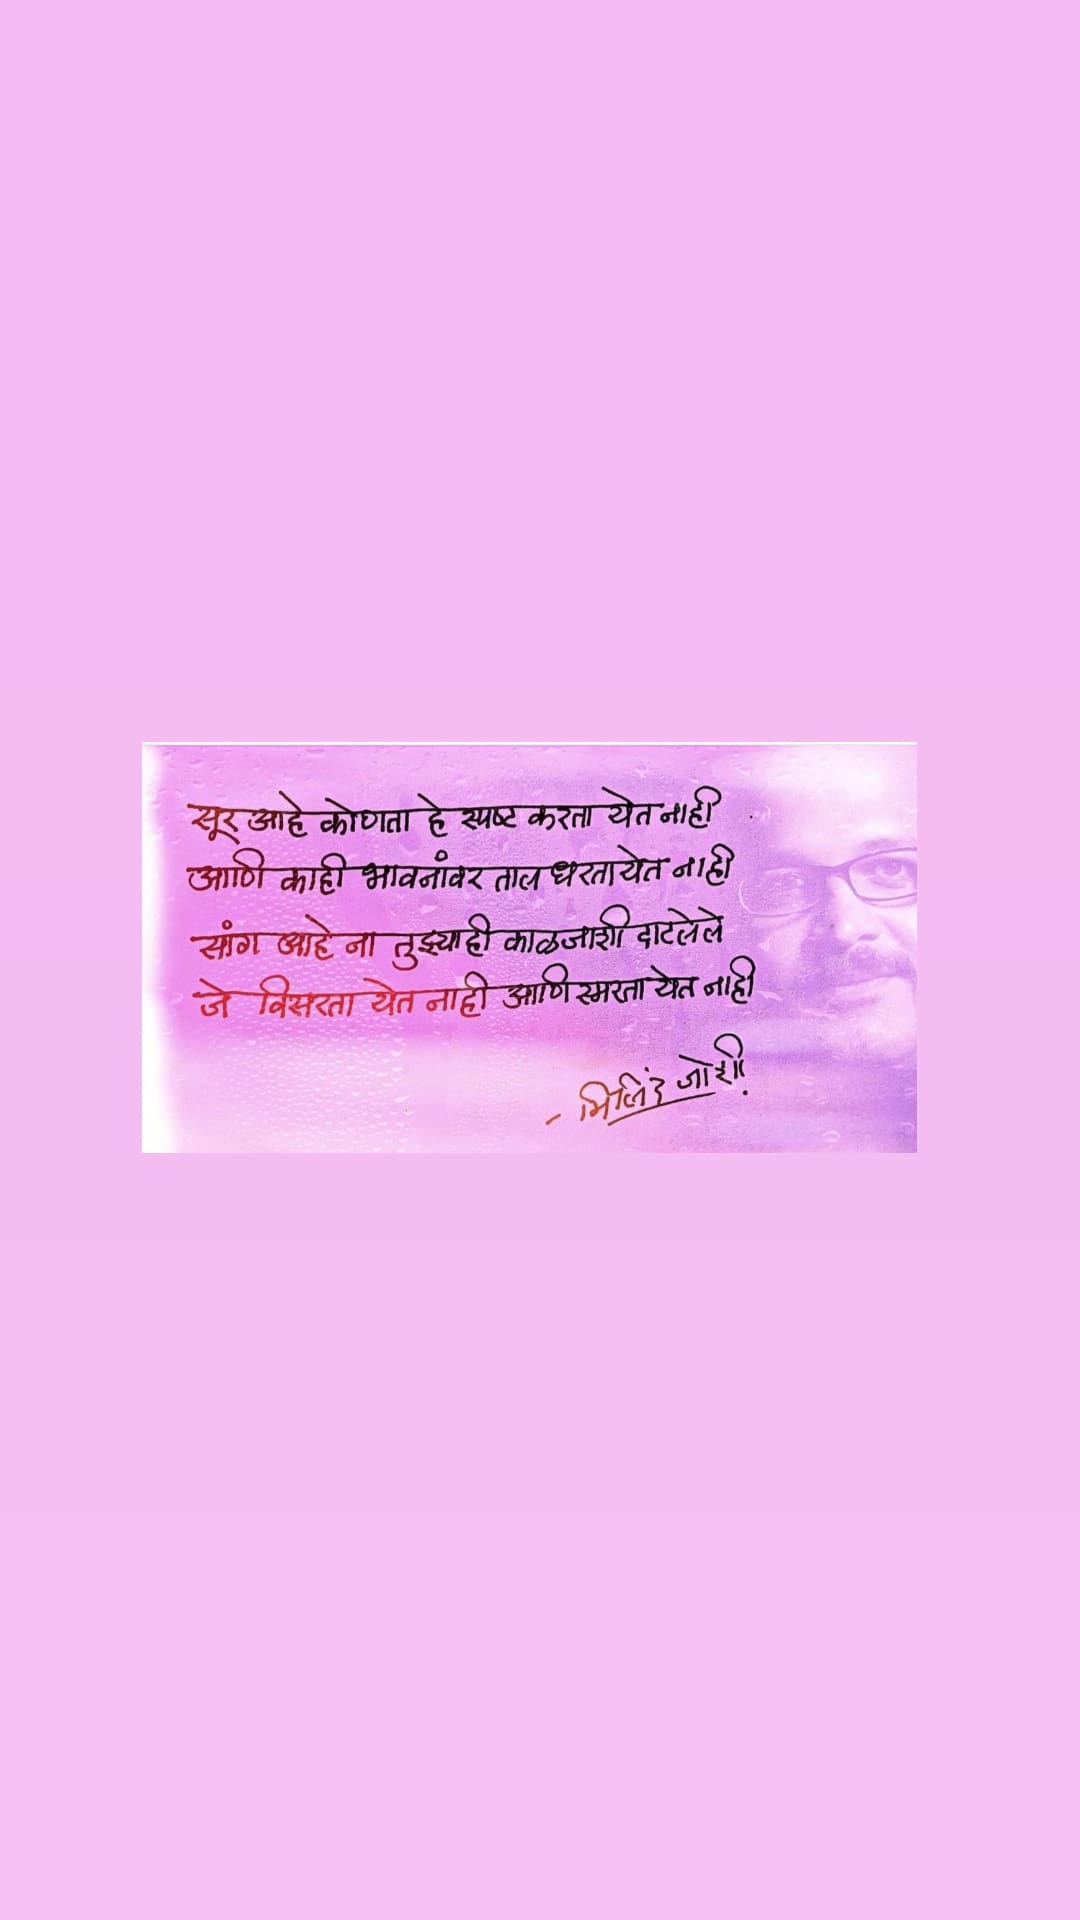 सूर आहे कोणता हे स्पष्ट करता येत नाही
आणि काही भावनांवर ताल धरता येत नाही
सांग आहे ना तुझ्याही काळजाशी दाटलेले
जे विसरता येत नाही आणि स्मरता येत नाही
- मिलिंद जोशी.